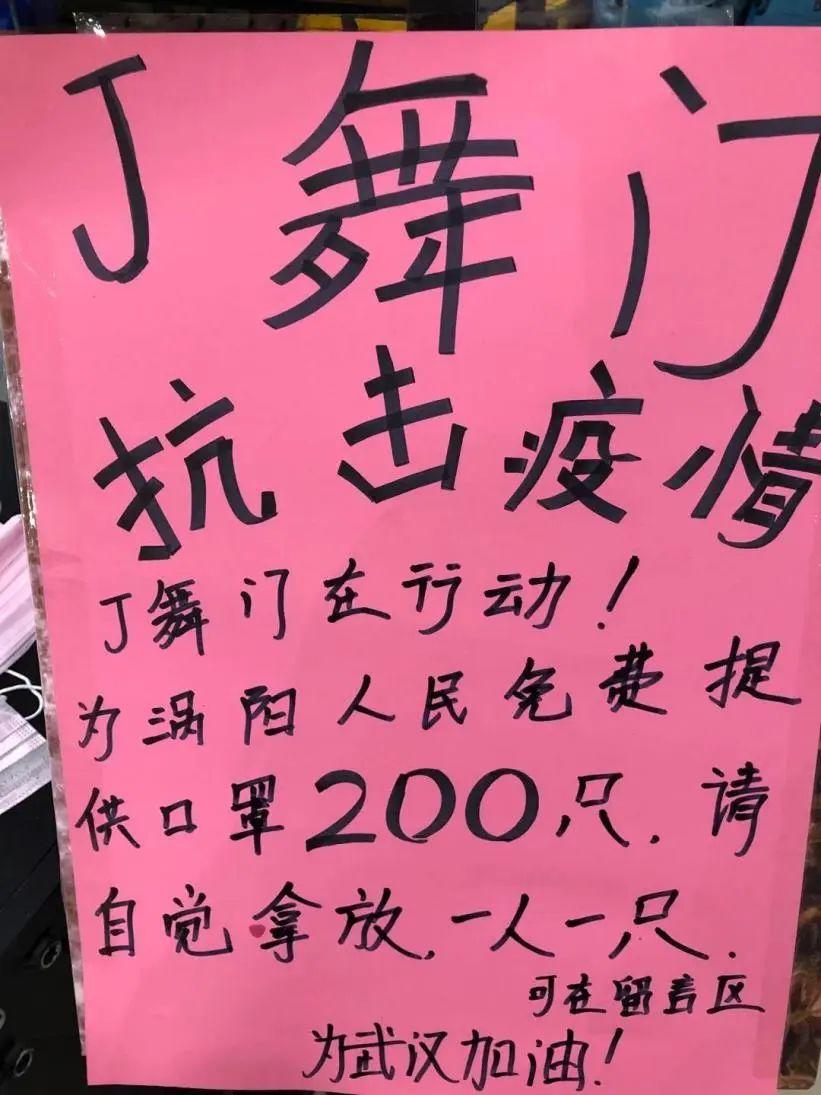 J舞门
抗击疫情
J舞门在行动！
为涡阳人民免费提
供口罩200只．请
自觉拿放，一人一只．
可在留言区
为武汉加油！